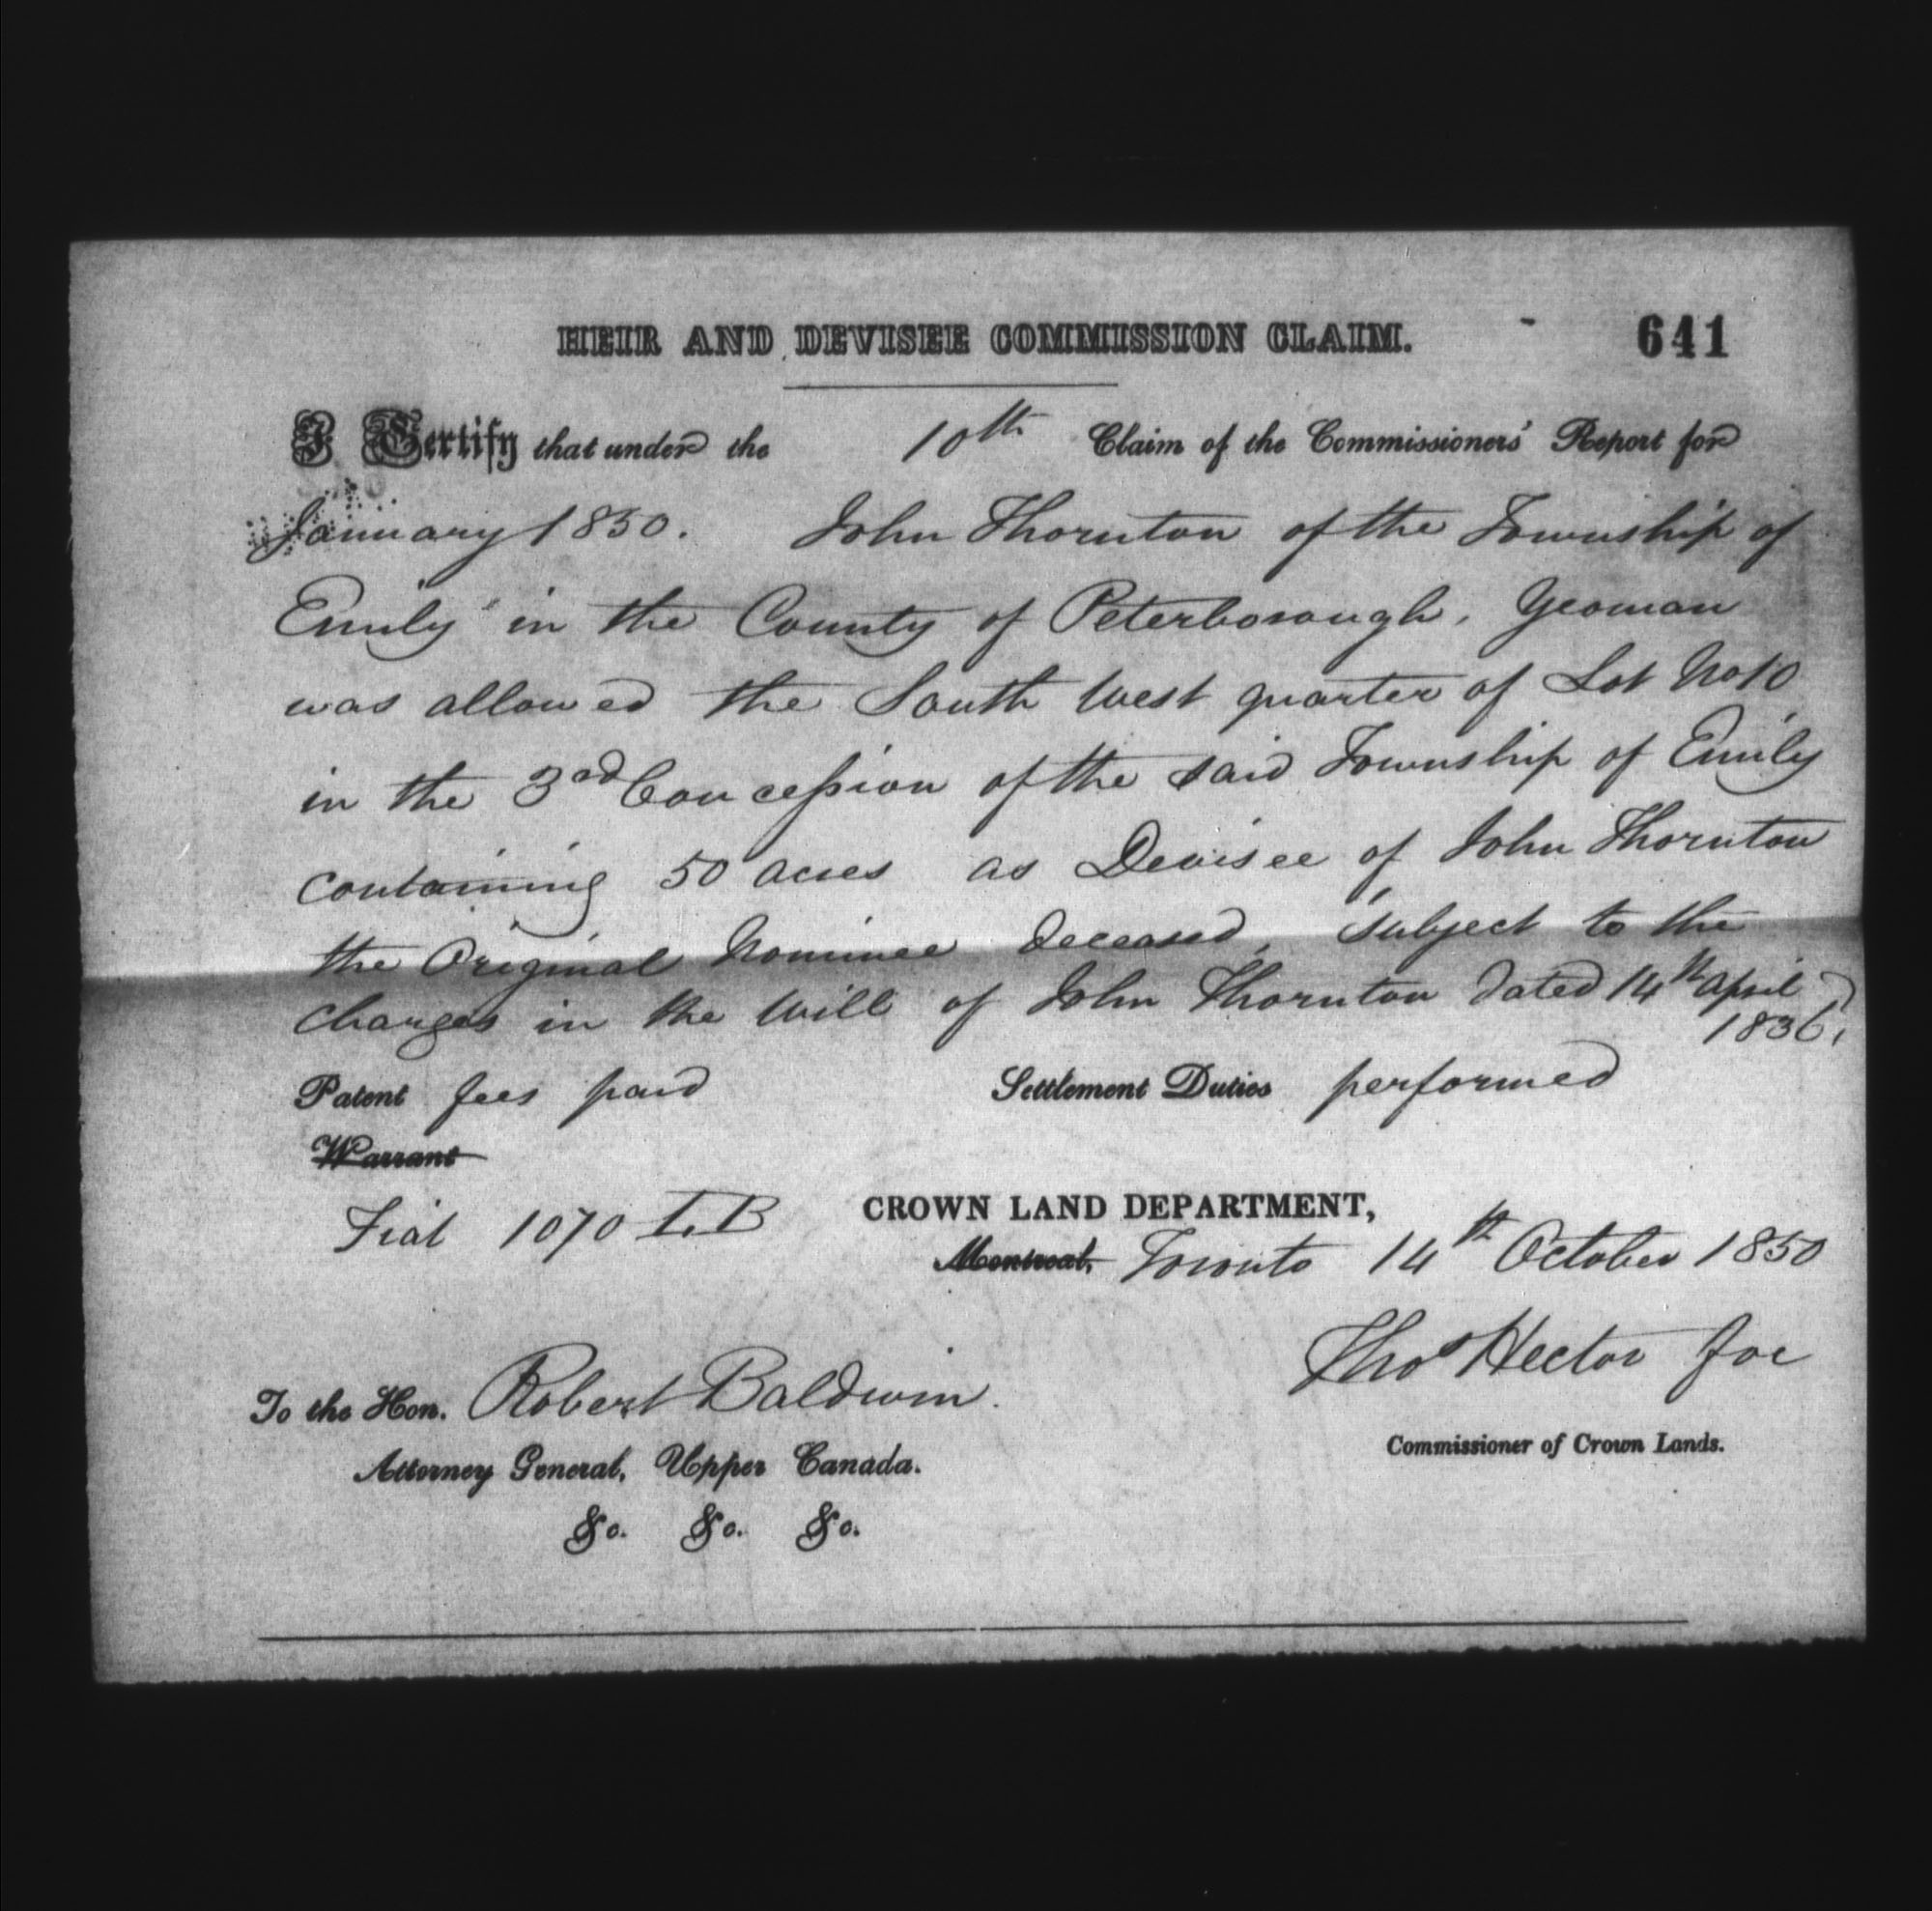 HEIR AND DEVISEE COMMISSION CLAIM. 641
I Certify that under the 10th Claim of the Commissioners' Report for
January 1850. John Thornton of the Township of
Emily in the County of Peterborough, Yeoman
was allowed the South West quarter of Lot No 10
in the 3rd Concession of the said Township of Emily
containing 50 acres as Devisee of John Thornton
the Original Nominee deceased, subject to the
charges in the Will of John Thornton dated 14th April
1836,
Patent fees paid Settlement Duties performed
Warrant
Fiat 1070 I.B CROWN LAND DEPARTMENT,
Montreal, Toronto 14th October 1850
Thos Hector for
To the Hon. Robert Baldwin.
Commissioner of Crown Lands.
Attorney General, Upper Canada.
&c. &c. &c.